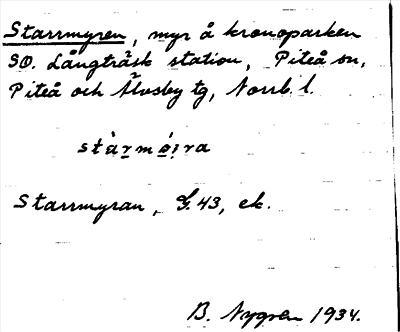 Starrmyren, myr å kronoparken
SO. Långträsk station, Piteå sn,
Piteå och Älvsby tg, Norrb. l.
Starrmyran, G.43, ek.
B. Nygren 1934.